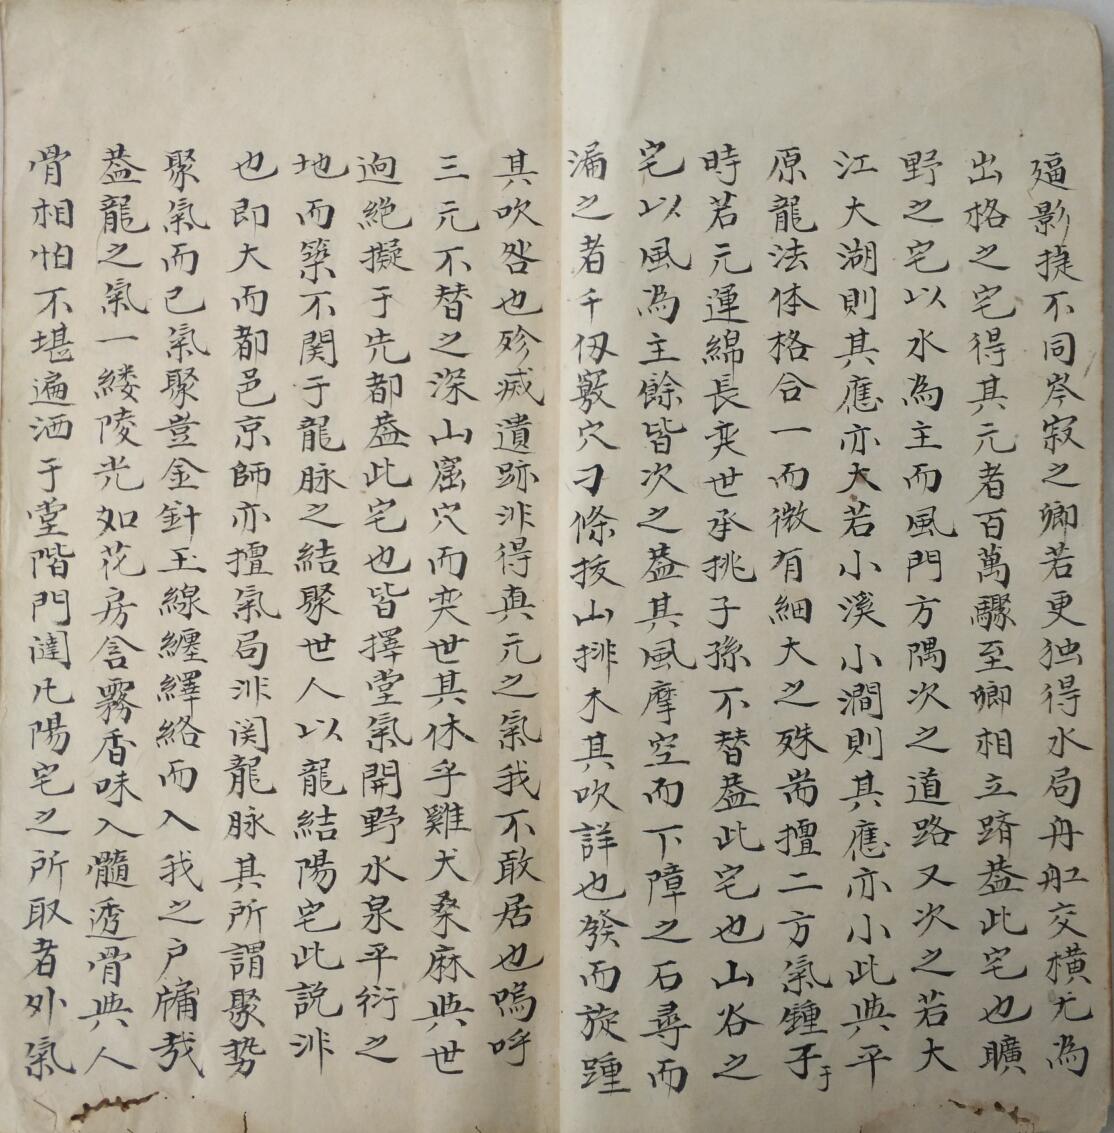 逼影㨗不同岑寂之鄉若更独得水局舟舡交横尤為
出格之宅得其元者百萬驟至卿相立躋葢此宅也曠
野之宅以水為主而風門方隅次之道路又次之若大
江大湖則其應亦大若小溪小澗則其應亦小此與平
原龍法体格合一而微有細大之殊耑擅二方氣鍾于
時若元運綿長奕世承挑子孫不替葢此宅也山谷之
宅以風為主餘皆次之葢其風摩空而下障之石尋而
漏之者千仭竅穴刁條拔山排木其吹詳也發而旋踵
其吹咎也殄滅遺跡非得真元之氣我不敢居也嗚呼
三元不替之深山窟穴而奕世其休乎雞犬桑麻與世
逈絕擬于先都葢此宅也皆擇堂氣開野水泉平衍之
地而築不関于龍脉之結聚世人以龍結陽宅此説非
也即大而都邑京師亦擅氣局非関龍脉其所謂聚势
聚氣而已氣聚豈金針玉線纏繹絡而入我之户牖哉
葢龍之氣一縷陵光如花房含霧香味入髓透骨與人
骨相怕不堪遍洒于堂階門闥凢陽宅之所取者外氣